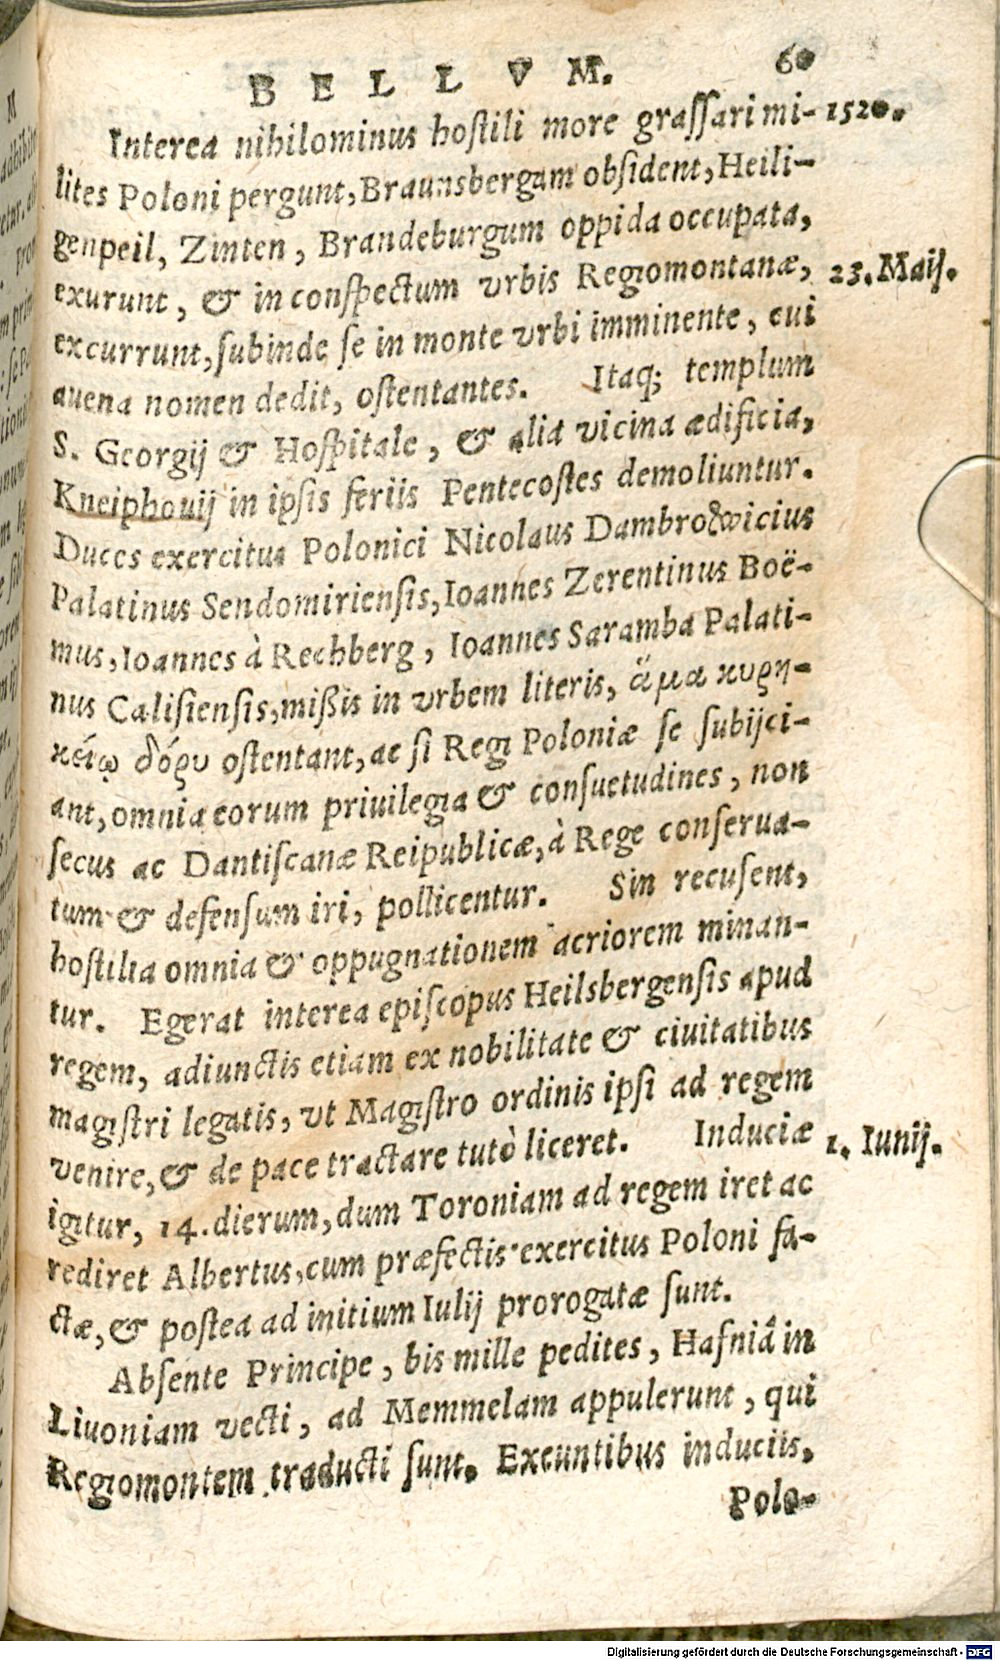 BELLVM. 60
Interea nihilominus hostili more grassari mi- 1520.
lites Poloni pergunt, Braunsbergam obsident, Heili-
genpeil, Zinten, Brandeburgum oppida occupata,
exurunt, & in conspectum vrbis Regiomontanæ, 23. Maij.
excurrunt, subinde se in monte vrbi imminente, cui
auena nomen dedit, ostentantes. Itaq; templum
S. Georgij & Hospitale, & alia vicina ædificia,
Kneiphouij in ipsis feriis Pentecostes demoliuntur.
Duces exercitus Polonici Nicolaus Dambrowicius
Palatinus Sendomiriensis, Ioannes Zerentinus Boë-
mus, Ioannes à Rechberg, Ioannes Saramba Palati-
nus Calisiensis, mißis in vrbem literis, ἅμα κυρη-
κείῳ δόρυ ostentant, ac si Regi Poloniæ se subijci-
ant, omnia eorum priuilegia & consuetudines, non
secus ac Dantiscanæ Reipublicæ, à Rege conserua-
tum & defensum iri, pollicentur. Sin recusent,
hostilia omnia & oppugnationem acriorem minan-
tur. Egerat interea episcopus Heilsbergensis apud
regem, adiunctis etiam ex nobilitate & ciuitatibus
magistri legatis, vt Magistro ordinis ipsi ad regem
venire, & de pace tractare tutò liceret. Induciæ 1. Iunij.
igitur, 14. dierum, dum Toroniam ad regem iret ac
rediret Albertus, cum præfectis exercitus Poloni fa-
ctæ, & postea ad initium Iulij prorogatæ sunt.
Absente Principe, bis mille pedites, Hafniâ in
Liuoniam vecti, ad Memmelam appulerunt, qui
Regiomontem traducti sunt. Exeuntibus induciis,
Polo-
Digitalisierung gefördert durch die Deutsche Forschungsgemeinschaft - DFG